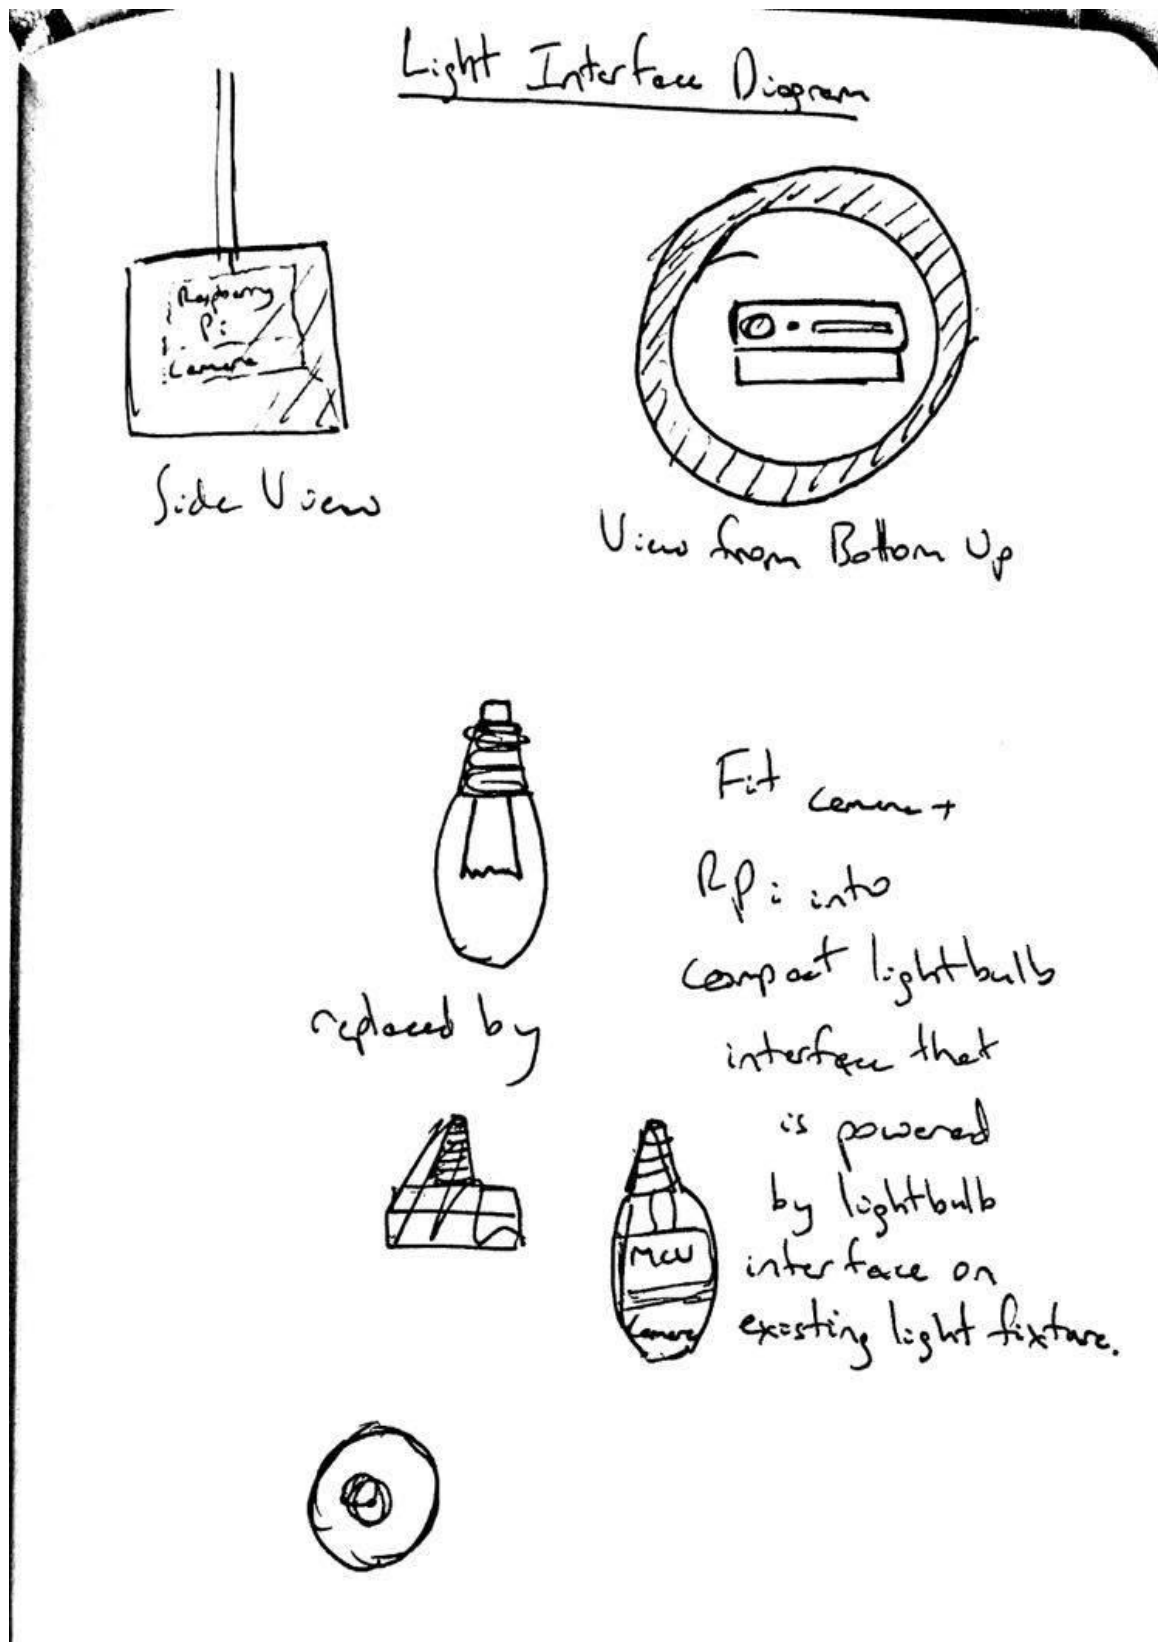 Light Interface Diagram
Raspberry
Pi
Camera
Side View
View from Bottom Up
Fit camera +
RPi into
compact lightbulb
interface that
is powered
by lightbulb
interface on
existing light fixture.
replaced by
MCU
Camera